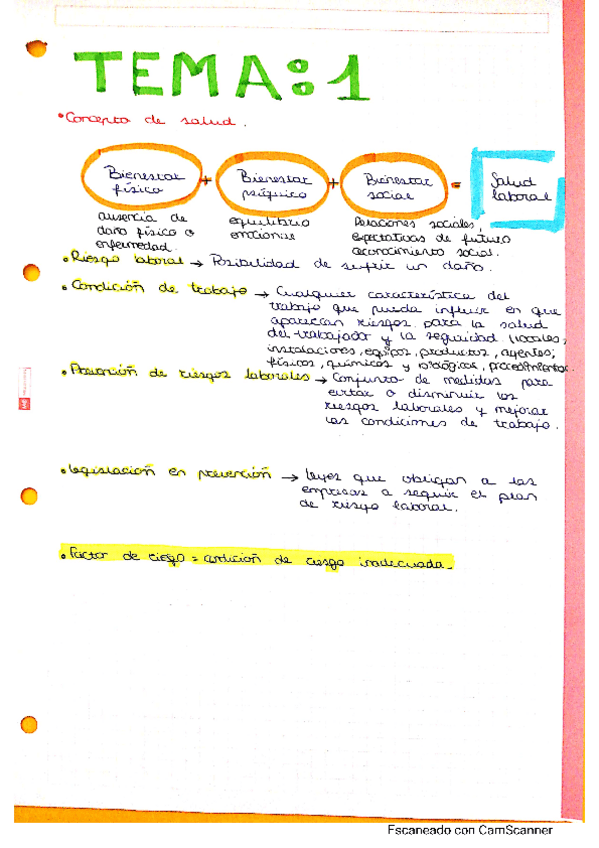 TEMA:1
• Concepto de salud.
Bienestar físico + Bienestar psíquico + Bienestar social = Salud laboral
ausencia de daño físico o enfermedad.
equilibrio emocional
Relaciones sociales, expectativas de futuro reconocimiento social.
• Riesgo laboral → Posibilidad de sufrir un daño.
• Condición de trabajo → Cualquier característica del
trabajo que pueda influir en que
aparezcan riesgos para la salud
del trabajador y la seguridad (locales,
instalaciones, equipos, productos, agentes,
físicos, químicos y biológicos, procedimientos.
• Prevención de riesgos laborales → Conjunto de medidas para
evitar o disminuir los
riesgos laborales y mejorar
las condiciones de trabajo.
• Legislación en prevención → Leyes que obligan a las
empresas a seguir el plan
de riesgo laboral.
• Factor de riesgo = condición de riesgo inadecuada.
Escaneado con CamScanner